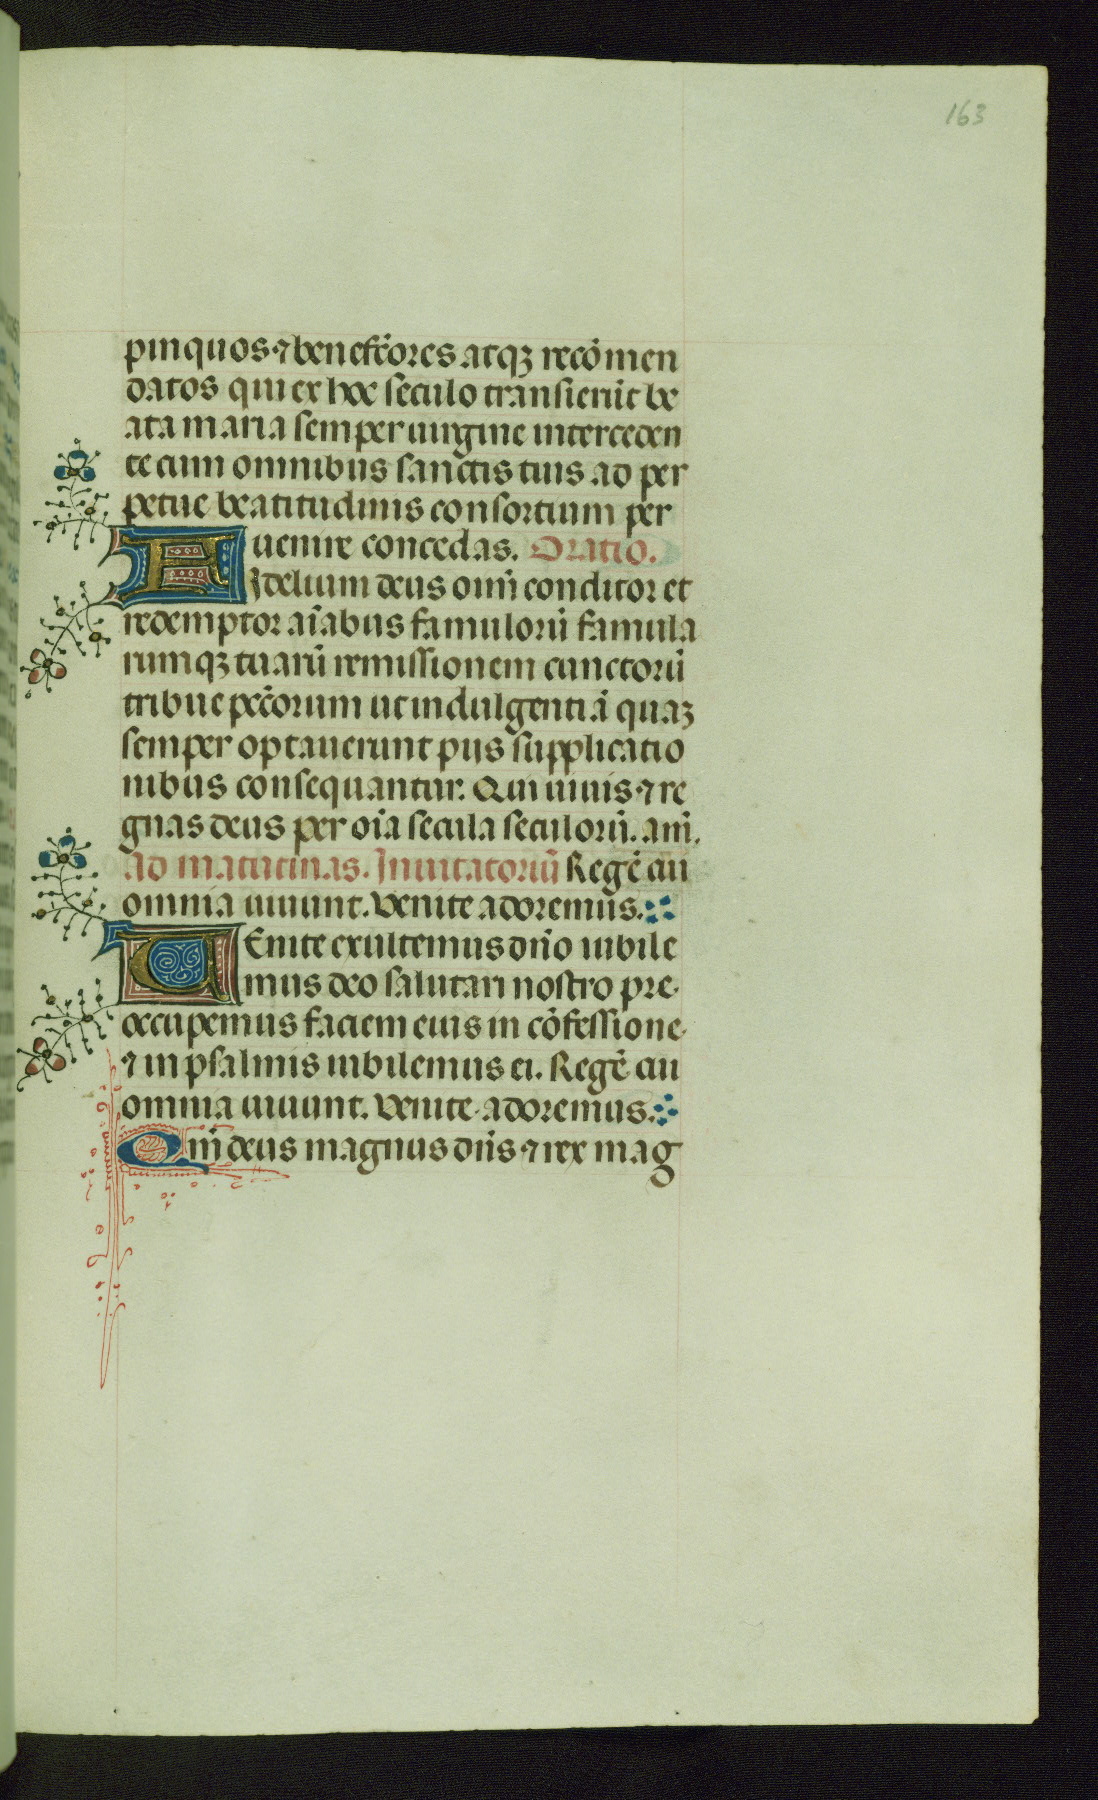 163
pinquos ⁊ benefc̄ores atqꝫ recōmen
datos qui ex hoc seculo transierūt be
ata maria semper uirgine interceden
te cum omnibus sanctis tuis ad per
petue beatitudinis consortium per
uenire concedas. Oratio.
Fidelium deus oīm̄ conditor et
redemptor aīabus famulorū famula
rumqꝫ tuarū remissionem cunctorū
tribue pec̄orum ut indulgentiā quaꝫ
semper optauerunt pijs supplicatio
nibus consequantur. Qui uiuis ⁊ re
gnas deus per oīa secula seculorū. am̄.
Ad matutinas. Inuitatoriū Regē cui
omnia uiuunt. Venite adoremus.
VEnite exultemus dn̄o iubile
mus deo salutari nostro pre
occupemus faciem eius in cōfessione
⁊ in psalmis iubilemus ei. Regē cui
omnia uiuunt. Venite adoremus.
Qm̄ deus magnus dn̄s ⁊ rex mag